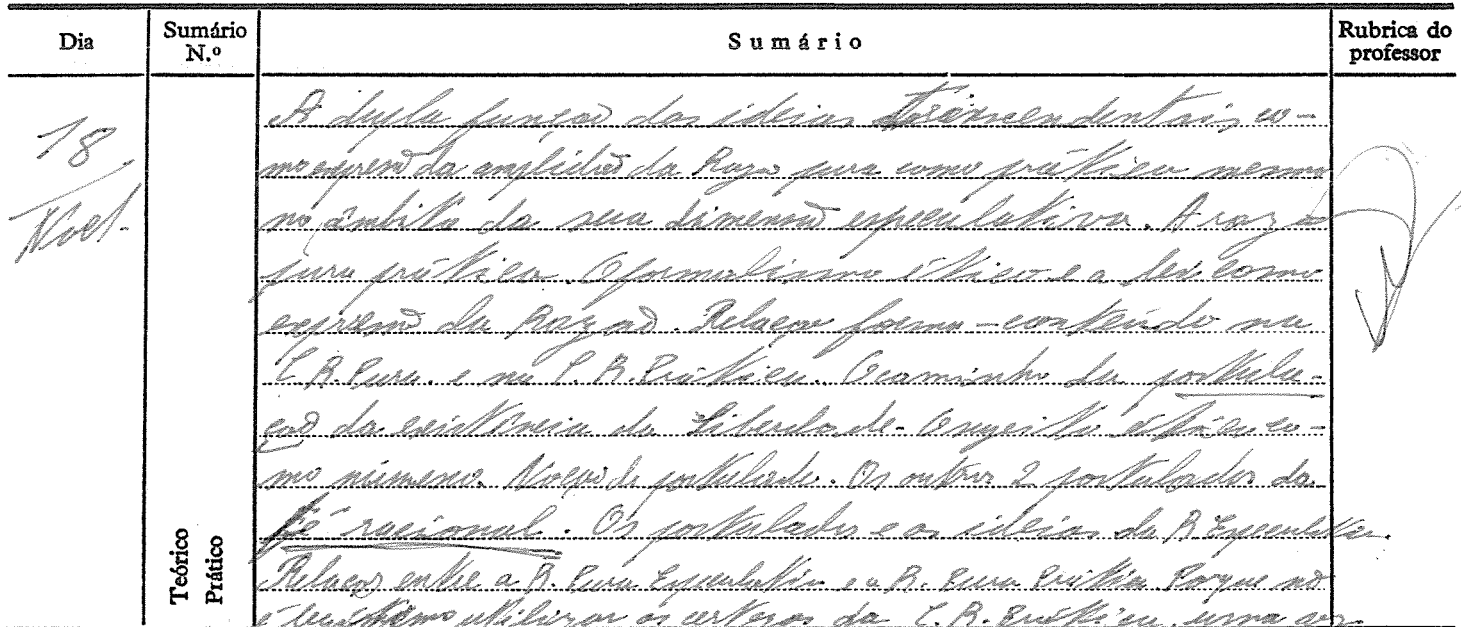 Dia
Sumário N.º
Sumário
Rubrica do professor
18
Nov.
Teórico
Prático
A dupla função das ideias transcendentais co-
mo expressão da amplidão da Razão pura como prática mesmo
no âmbito da sua dimensão especulativa. A razão
pura prática. O formalismo ético e a lei como
expressão da Razão. Relação forma-conteúdo na
C. R. Pura. e na C. R. Prática. O caminho da postula-
ção da existência da Liberdade. O sujeito ético co-
mo númeno. Noção de postulado. Os outros 2 postulados da
fé racional. Os postulados e as ideias da R. Especulativa.
Relação entre a R. Pura Especulativa e a R. Pura Prática. Porque não
é legítimo utilizar as certezas da C. R. Prática, uma